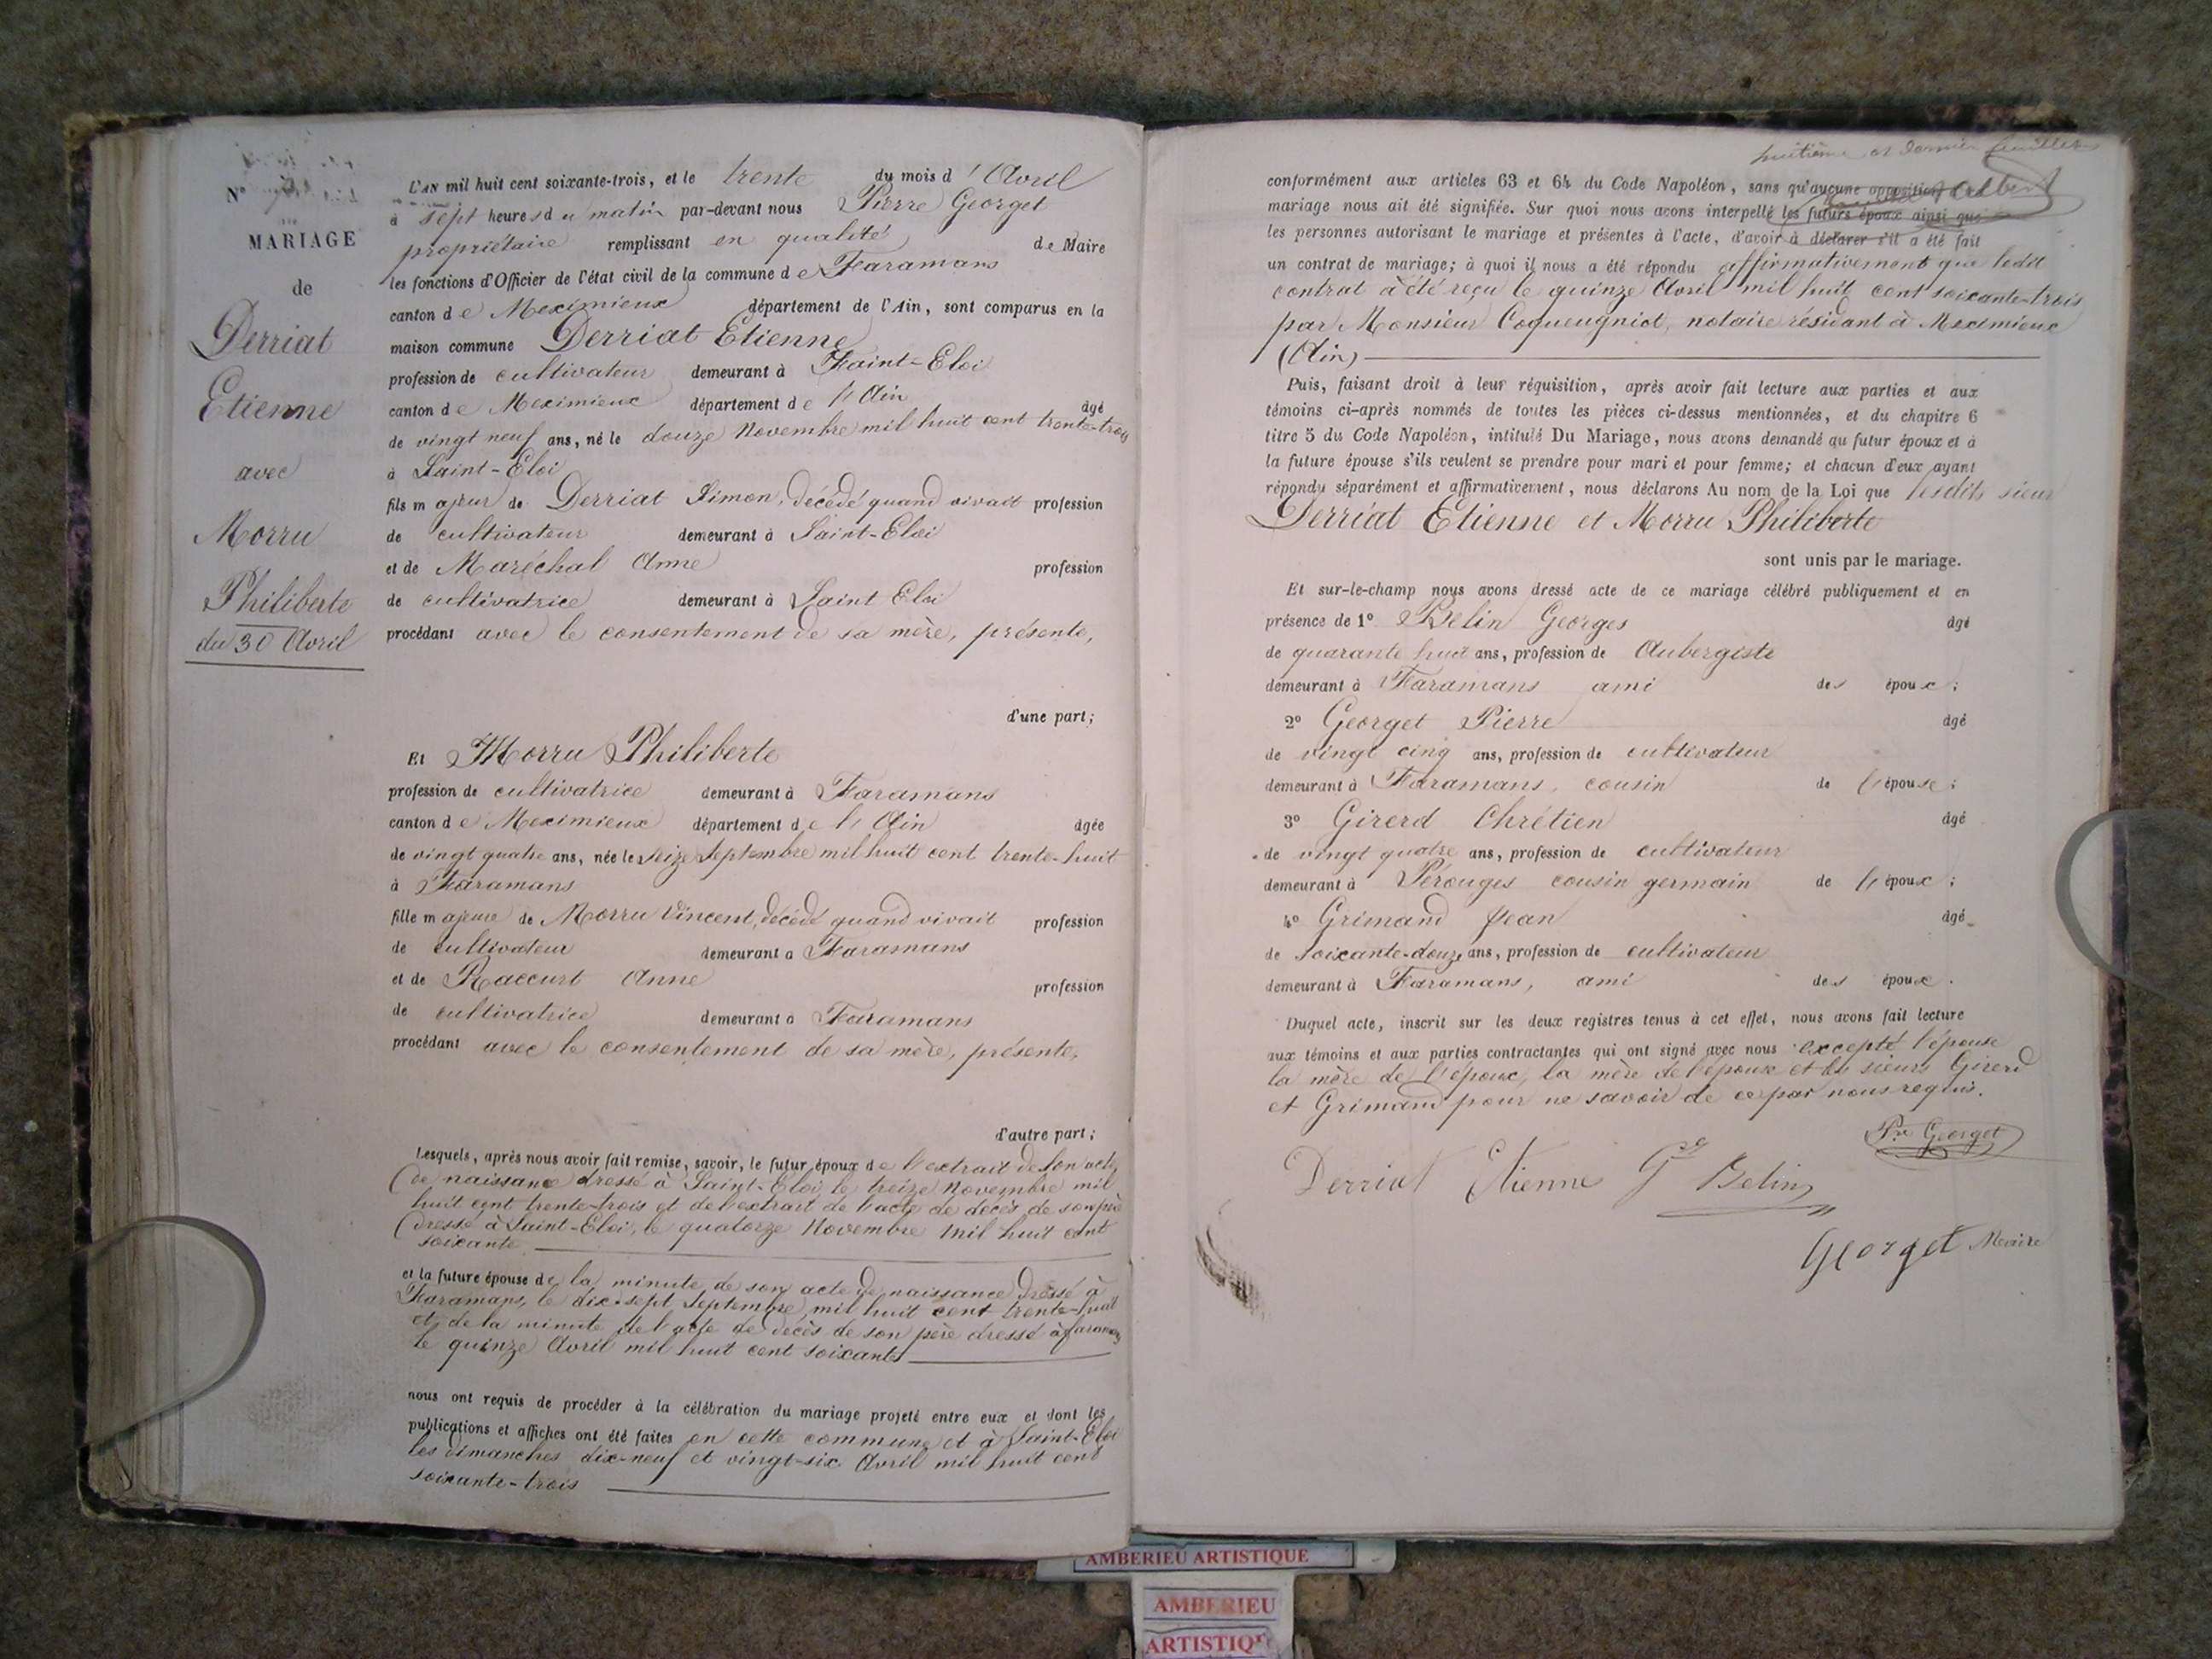 N°
MARIAGE
de
Derriat
Etienne
avec
Morru
Philiberte
du 30 Avril
L'AN mil huit cent soixante-trois, et le trente du mois d'Avril
à sept heures du matin par-devant nous Pierre Georget
propriétaire remplissant en qualité de Maire
les fonctions d'Officier de l'état civil de la commune de Faramans
canton de Meximieux département de l'Ain, sont comparus en la
maison commune Derriat Etienne
profession de cultivateur demeurant à Saint-Eloi
canton de Meximieux département de l'Ain âgé
de vingt neuf ans, né le douze Novembre mil huit cent trente-trois
à Saint-Eloi
fils majeur de Derriat Simon, décédé quand vivait profession
de cultivateur demeurant à Saint-Eloi
et de Maréchal Anne profession
de cultivatrice demeurant à Saint Eloi
procédant avec le consentement de sa mère, présente,
d'une part;
Et Morru Philiberte
profession de cultivatrice demeurant à Faramans
canton de Meximieux département de l'Ain âgée
de vingt quatre ans, née le seize Septembre mil huit cent trente-huit
à Faramans
fille majeure de Morru Vincent, décédé quand vivait profession
de cultivateur demeurant à Faramans
et de Raccurt Anne profession
de cultivatrice demeurant à Faramans
procédant avec le consentement de sa mère, présente,
d'autre part;
Lesquels, après nous avoir fait remise, savoir, le futur époux de l'extrait de son acte
de naissance dressé à Saint-Eloi, le treize Novembre mil
huit cent trente-trois et de l'extrait de l'acte de décès de son père
dressé à Saint-Eloi, le quatorze Novembre mil huit cent
soixante
et la future épouse de la minute de son acte de naissance dressé à
Faramans, le dix-sept Septembre mil huit cent trente-huit
et de la minute de l'acte de décès de son père dressé à faramans
le quinze Avril mil huit cent soixante
nous ont requis de procéder à la célébration du mariage projeté entre eux et dont les
publications et affiches ont été faites en cette commune et à Saint-Eloi
les dimanches dix-neuf et vingt-six Avril mil huit cent
soixante-trois
huitième et dernier feuillet
conformément aux articles 63 et 64 du Code Napoléon, sans qu'aucune opposition
mariage nous ait été signifiée. Sur quoi nous avons interpellé les futurs époux ainsi que
les personnes autorisant le mariage et présentes à l'acte, d'avoir à déclarer s'il a été fait
un contrat de mariage; à quoi il nous a été répondu affirmativement que ledit
contrat a été reçu le quinze Avril mil huit cent soixante-trois
par Monsieur Coqueugniot, notaire résidant à Meximieux
(Ain)
Puis, faisant droit à leur réquisition, après avoir fait lecture aux parties et aux
témoins ci-après nommés de toutes les pièces ci-dessus mentionnées, et du chapitre 6
titre 5 du Code Napoléon, intitulé Du Mariage, nous avons demandé au futur époux et à
la future épouse s'ils veulent se prendre pour mari et pour femme; et chacun d'eux ayant
répondu séparément et affirmativement, nous déclarons Au nom de la Loi que lesdits sieur
Derriat Etienne et Morru Philiberte
sont unis par le mariage.
Et sur-le-champ nous avons dressé acte de ce mariage célébré publiquement et en
présence de 1° Belin Georges âgé
de quarante huit ans, profession de Aubergiste
demeurant à Faramans ami des époux;
2° Georget Pierre âgé
de vingt cinq ans, profession de cultivateur
demeurant à Faramans, cousin de l'épouse;
3° Girerd Chrétien âgé
de vingt quatre ans, profession de cultivateur
demeurant à Pérouges cousin germain de l'époux;
4° Grimand Jean âgé
de soixante-douze ans, profession de cultivateur
demeurant à Faramans, ami des époux.
Duquel acte, inscrit sur les deux registres tenus à cet effet, nous avons fait lecture
aux témoins et aux parties contractantes qui ont signé avec nous excepté l'épouse
la mère de l'époux, la mère de l'épouse et les sieurs Girerd
et Grimand pour ne savoir de ce par nous requis.
Pre Georget
Derriat Etienne Ge Belin
Georget Maire
AMBERIEU ARTISTIQUE
AMBERIEU
ARTISTIQU